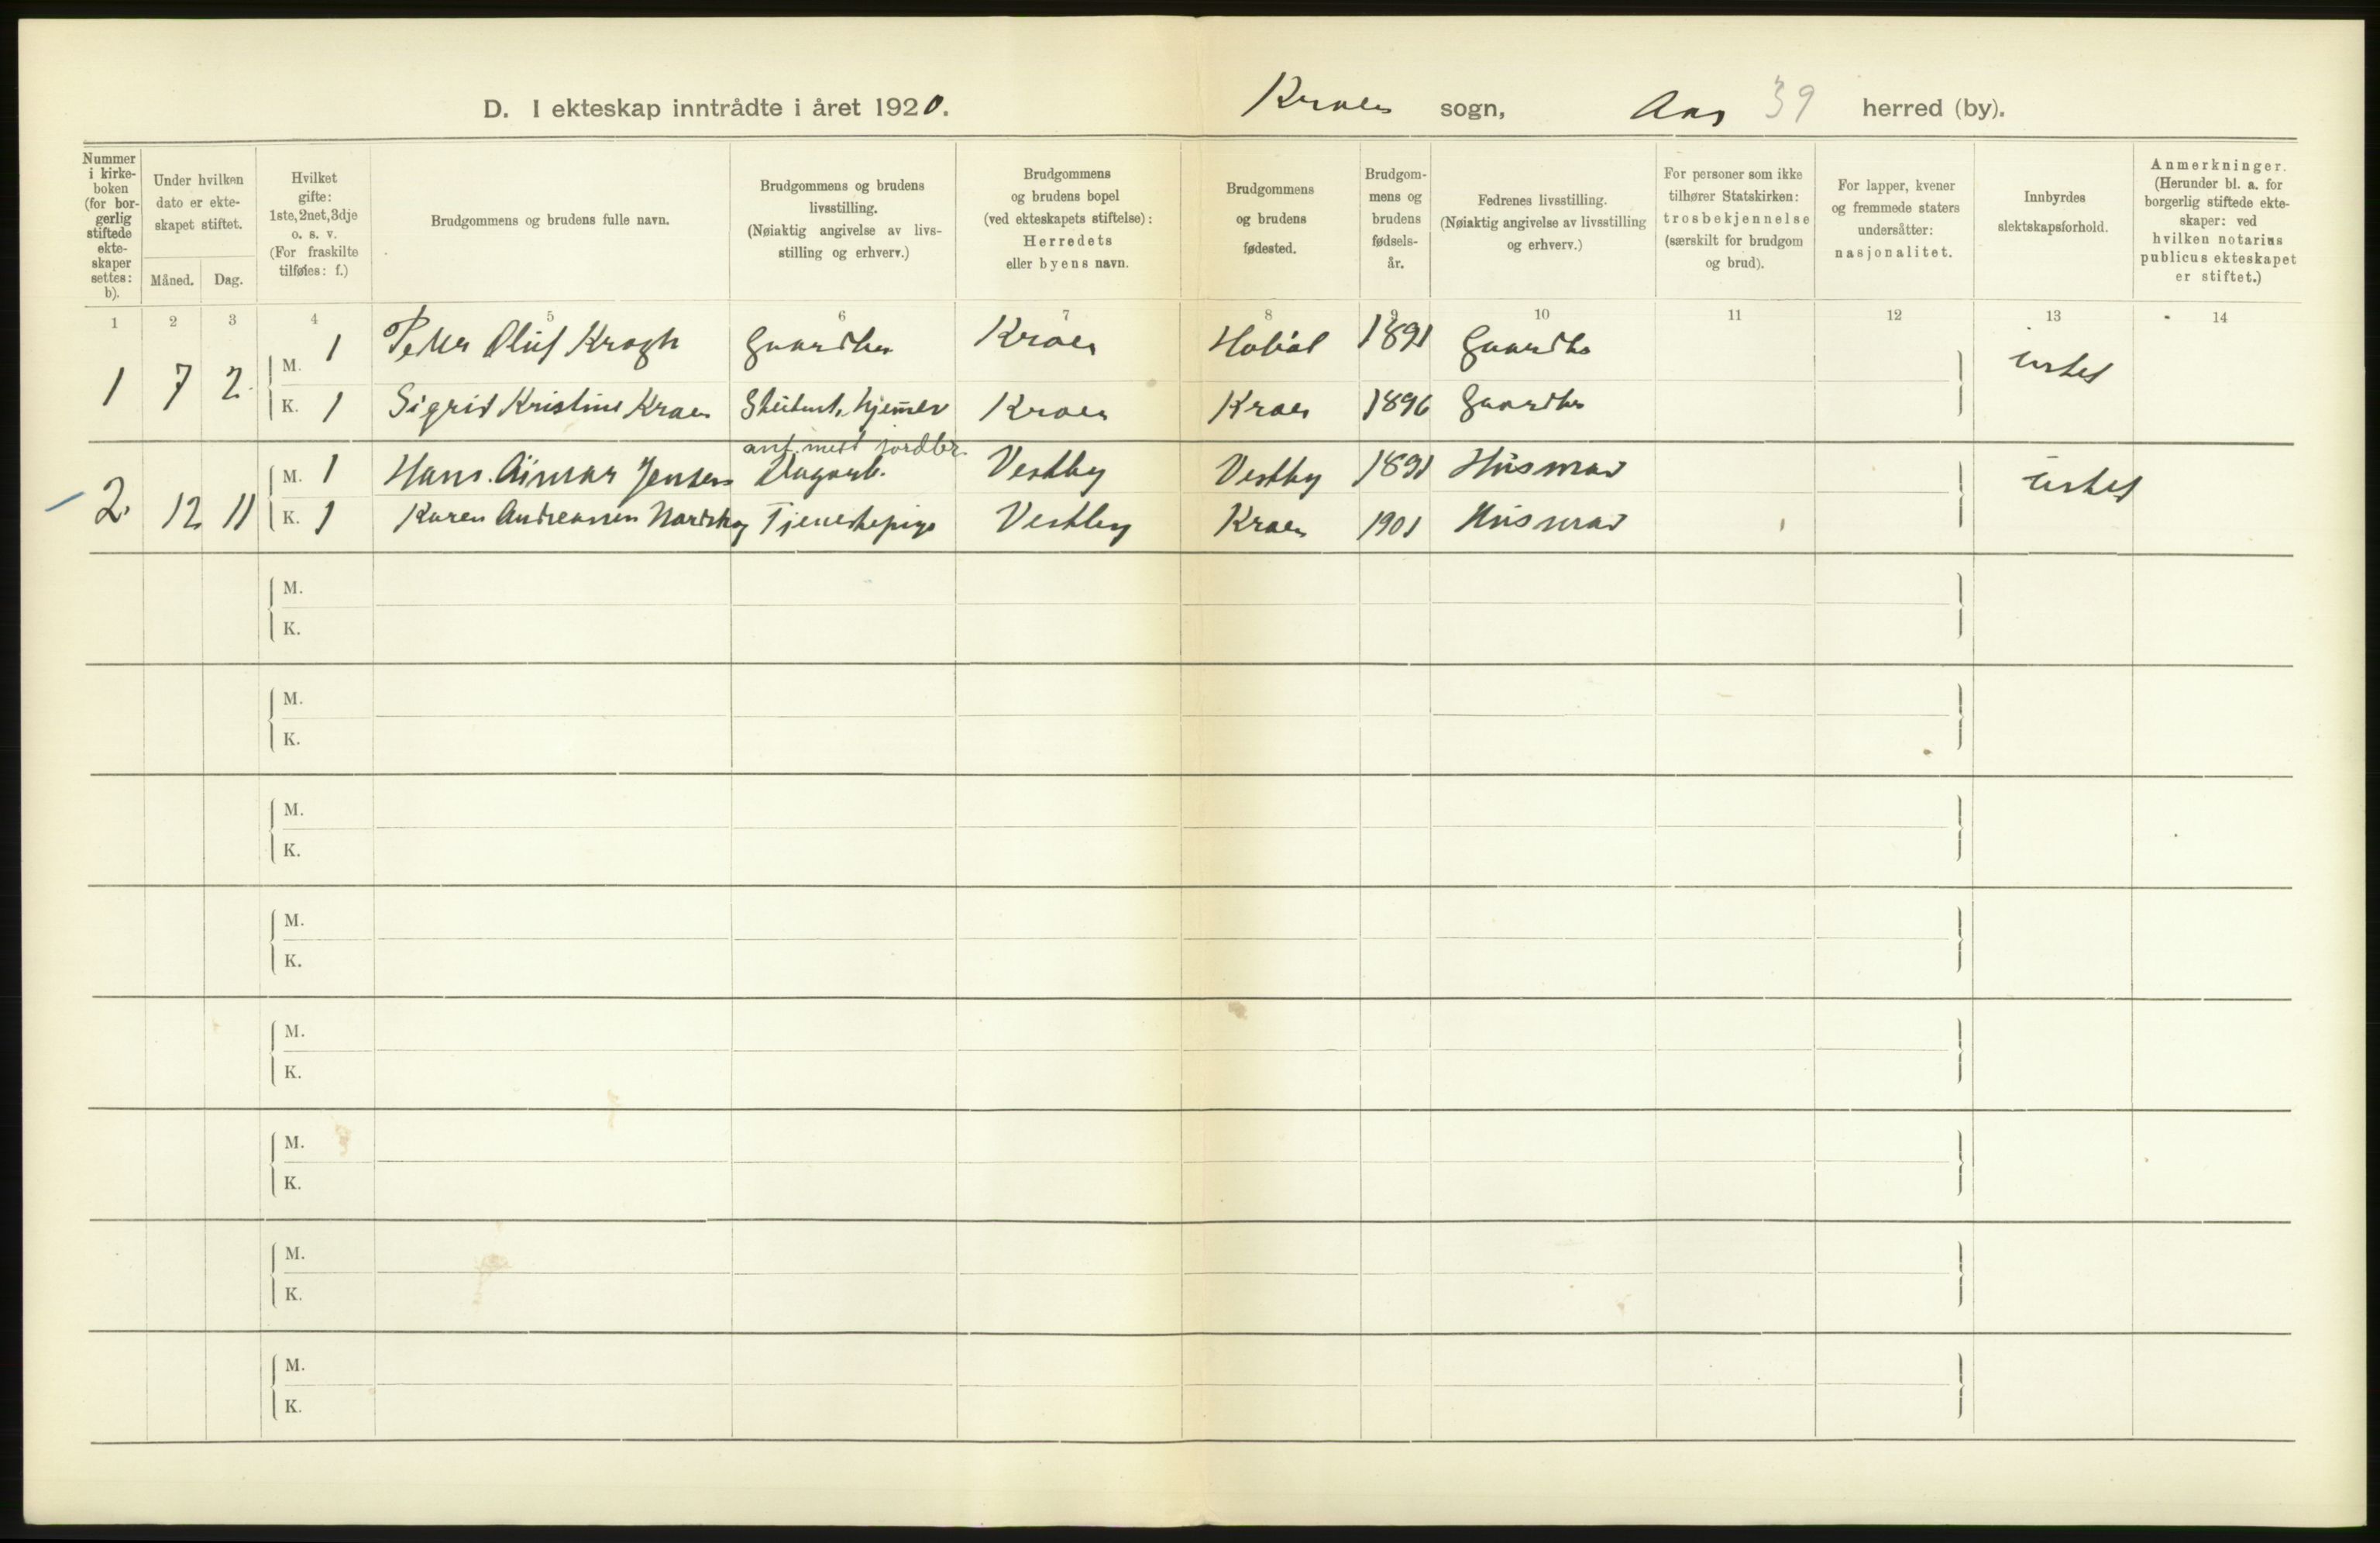 D. I ekteskap inntrådte i året 1920. Kraer sogn, Aas 39 herred (by).
Nummer i kirke-boken (for bor-gerlig stiftede ekte-skaper settes: b).
Under hvilken dato er ekte-skapet stiftet.
Måned. Dag.
Hvilket gifte: 1ste, 2net, 3dje o. s. v. (For fraskilte tilføies: f.)
Brudgommens og brudens fulle navn.
Brudgommens og brudens livsstilling. (Nøiaktig angivelse av livs-stilling og erhverv.)
Brudgommens og brudens bopel (ved ekteskapets stiftelse): Herredets eller byens navn.
Brudgommens og brudens fødested.
Brudgom-mens og brudens fødsels-år.
Fedrenes livsstilling. (Nøiaktig angivelse av livsstilling og erhverv.)
For personer som ikke tilhører Statskirken: trosbekjennelse (særskilt for brudgom og brud).
For lapper, kvener og fremmede staters undersåtter: nasjonalitet.
Innbyrdes slektskapsforhold.
Anmerkninger. (Herunder bl. a. for borgerlig stiftede ekte-skaper: ved hvilken notarius publicus ekteskapet er stiftet.)
1 2 3 4 5 6 7 8 9 10 11 12 13 14
1 7 2 M. 1 Petter Oluf Krogh Gaardbr Kraer Hobøl 1891 Gaardbr intet
K. 1 Sigrid Kristine Kraer Student, hjemmev Kraer Kraer 1896 Gaardbr
ant. med jordbr.
2. 12 11 M. 1 Hans Aimar Jensen Dagarb. Vestby Vestby 1891 Husmand intet
K. 1 Karen Andreassen Nordskog Tjenestepige Vestby Kraer 1901 Husmand
M.
K.
M.
K.
M.
K.
M.
K.
M.
K.
M.
K.
M.
K.
M.
K.